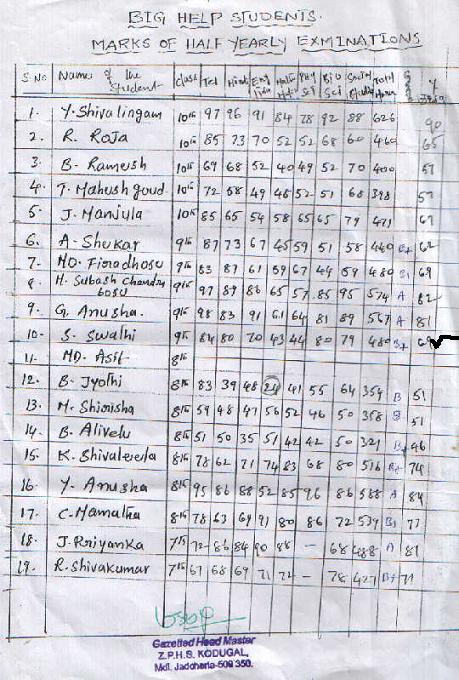 BIG HELP STUDENTS.
MARKS OF HALF YEARLY EXMINATIONS
S.No Name of the Student class Tel Hindi Eng lish Maths Phy Sci Bio Sci Social Studies Total Marks %
1. Y. Shivalingam 10th 97 96 91 84 78 92 88 626 90
2. R. Raja 10th 85 73 70 52 52 68 60 460 65
3. B. Ramesh 10th 69 68 52 40 49 52 70 400 57
4. T. Mahesh goud 10th 72 58 49 46 52 51 68 398 57
5. J. Manjula 10th 85 65 54 58 65 65 79 471 67
6. A. Shekar 9th 87 73 67 45 59 51 58 440 B+ 62
7. MD. Firadhosu 9th 83 87 61 59 67 44 59 480 B+ 69
8. H. Subash Chandra bosu 9th 97 87 88 65 57 85 95 574 A 82
9. G. Anusha. 9th 98 83 91 61 64 81 89 567 A 81
10. S. Swathi 9th 84 80 70 43 44 80 79 480 B+
11. MD. Asif 8th
12. B. Jyothi 8th 83 39 48 24 41 55 64 354 B 51
13. M. Shirisha 8th 59 48 47 56 52 46 50 358 B 51
14. B. Alivelu 8th 51 50 35 51 42 42 50 321 B+ 46
15. K. Shivaleela 8th 78 62 71 74 83 68 80 516 B+ 74
16. Y. Anusha 8th 95 86 88 52 85 96 86 588 A 84
17. C. Mamatha 8th 78 63 69 91 80 86 72 539 B+ 77
18. J. Rriyanka 7th 72 86 84 90 88 - 68 488 A 81
19. R. Shivakumar 7th 67 68 69 71 72 - 78 427 B+ 71
Gazetted Head Master
Z.P.H.S. KODUGAL,
Mdl. Jadcherla-509 350.